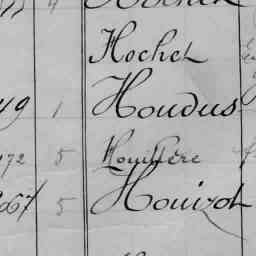 Hochet
49 1 Houdus
172 5 Houillère
267 5 Houizot